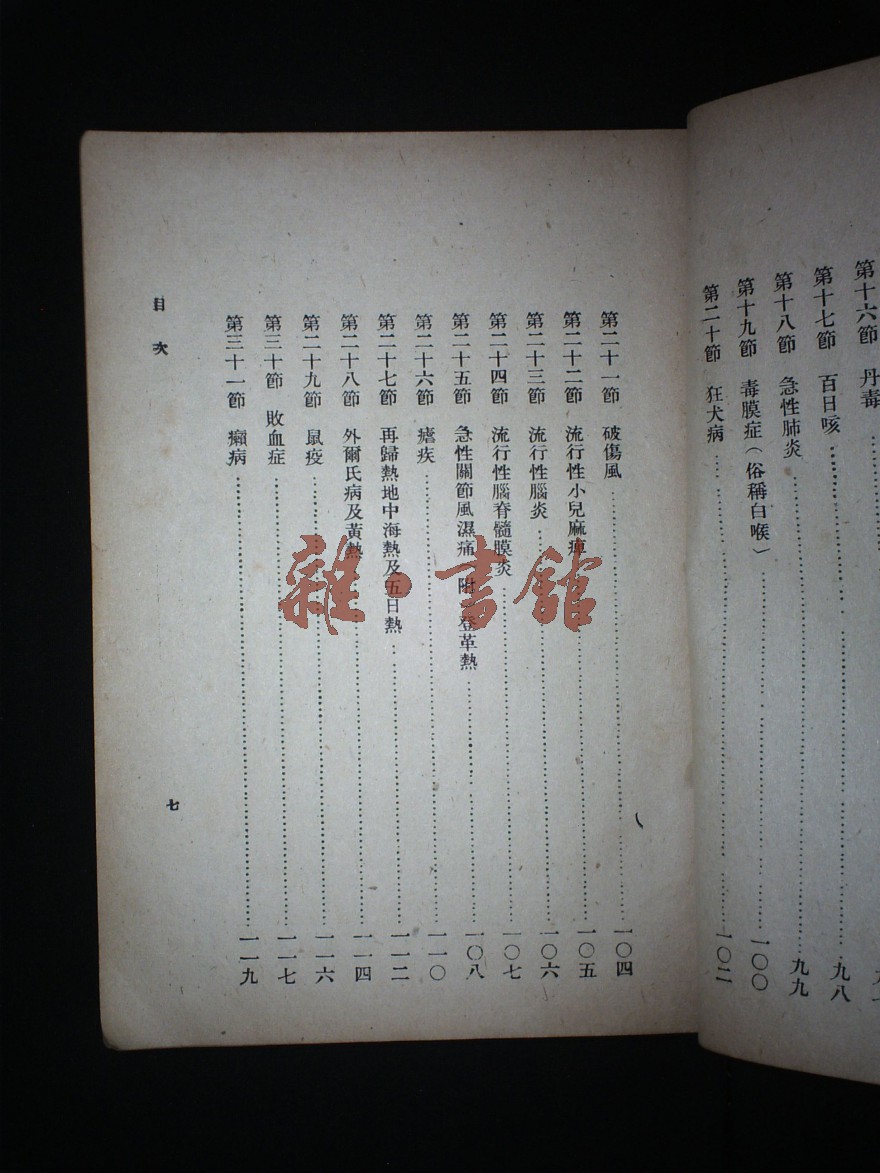 第十六節 丹毒
第十七節 百日咳 九八
第十八節 急性肺炎 九九
第十九節 毒膜症（俗稱白喉） 一〇〇
第二十節 狂犬病 一〇二
第二十一節 破傷風 一〇四
第二十二節 流行性小兒麻痺 一〇五
第二十三節 流行性腦炎 一〇六
第二十四節 流行性腦脊髓膜炎 一〇七
第二十五節 急性關節風濕痛 附 登革熱 一〇八
第二十六節 瘧疾 一一〇
第二十七節 再歸熱地中海熱及五日熱 一一二
第二十八節 外爾氏病及黃熱 一一四
第二十九節 鼠疫 一一六
第三十節 敗血症 一一七
第三十一節 癩病 一一九
目次
七
雜·書館